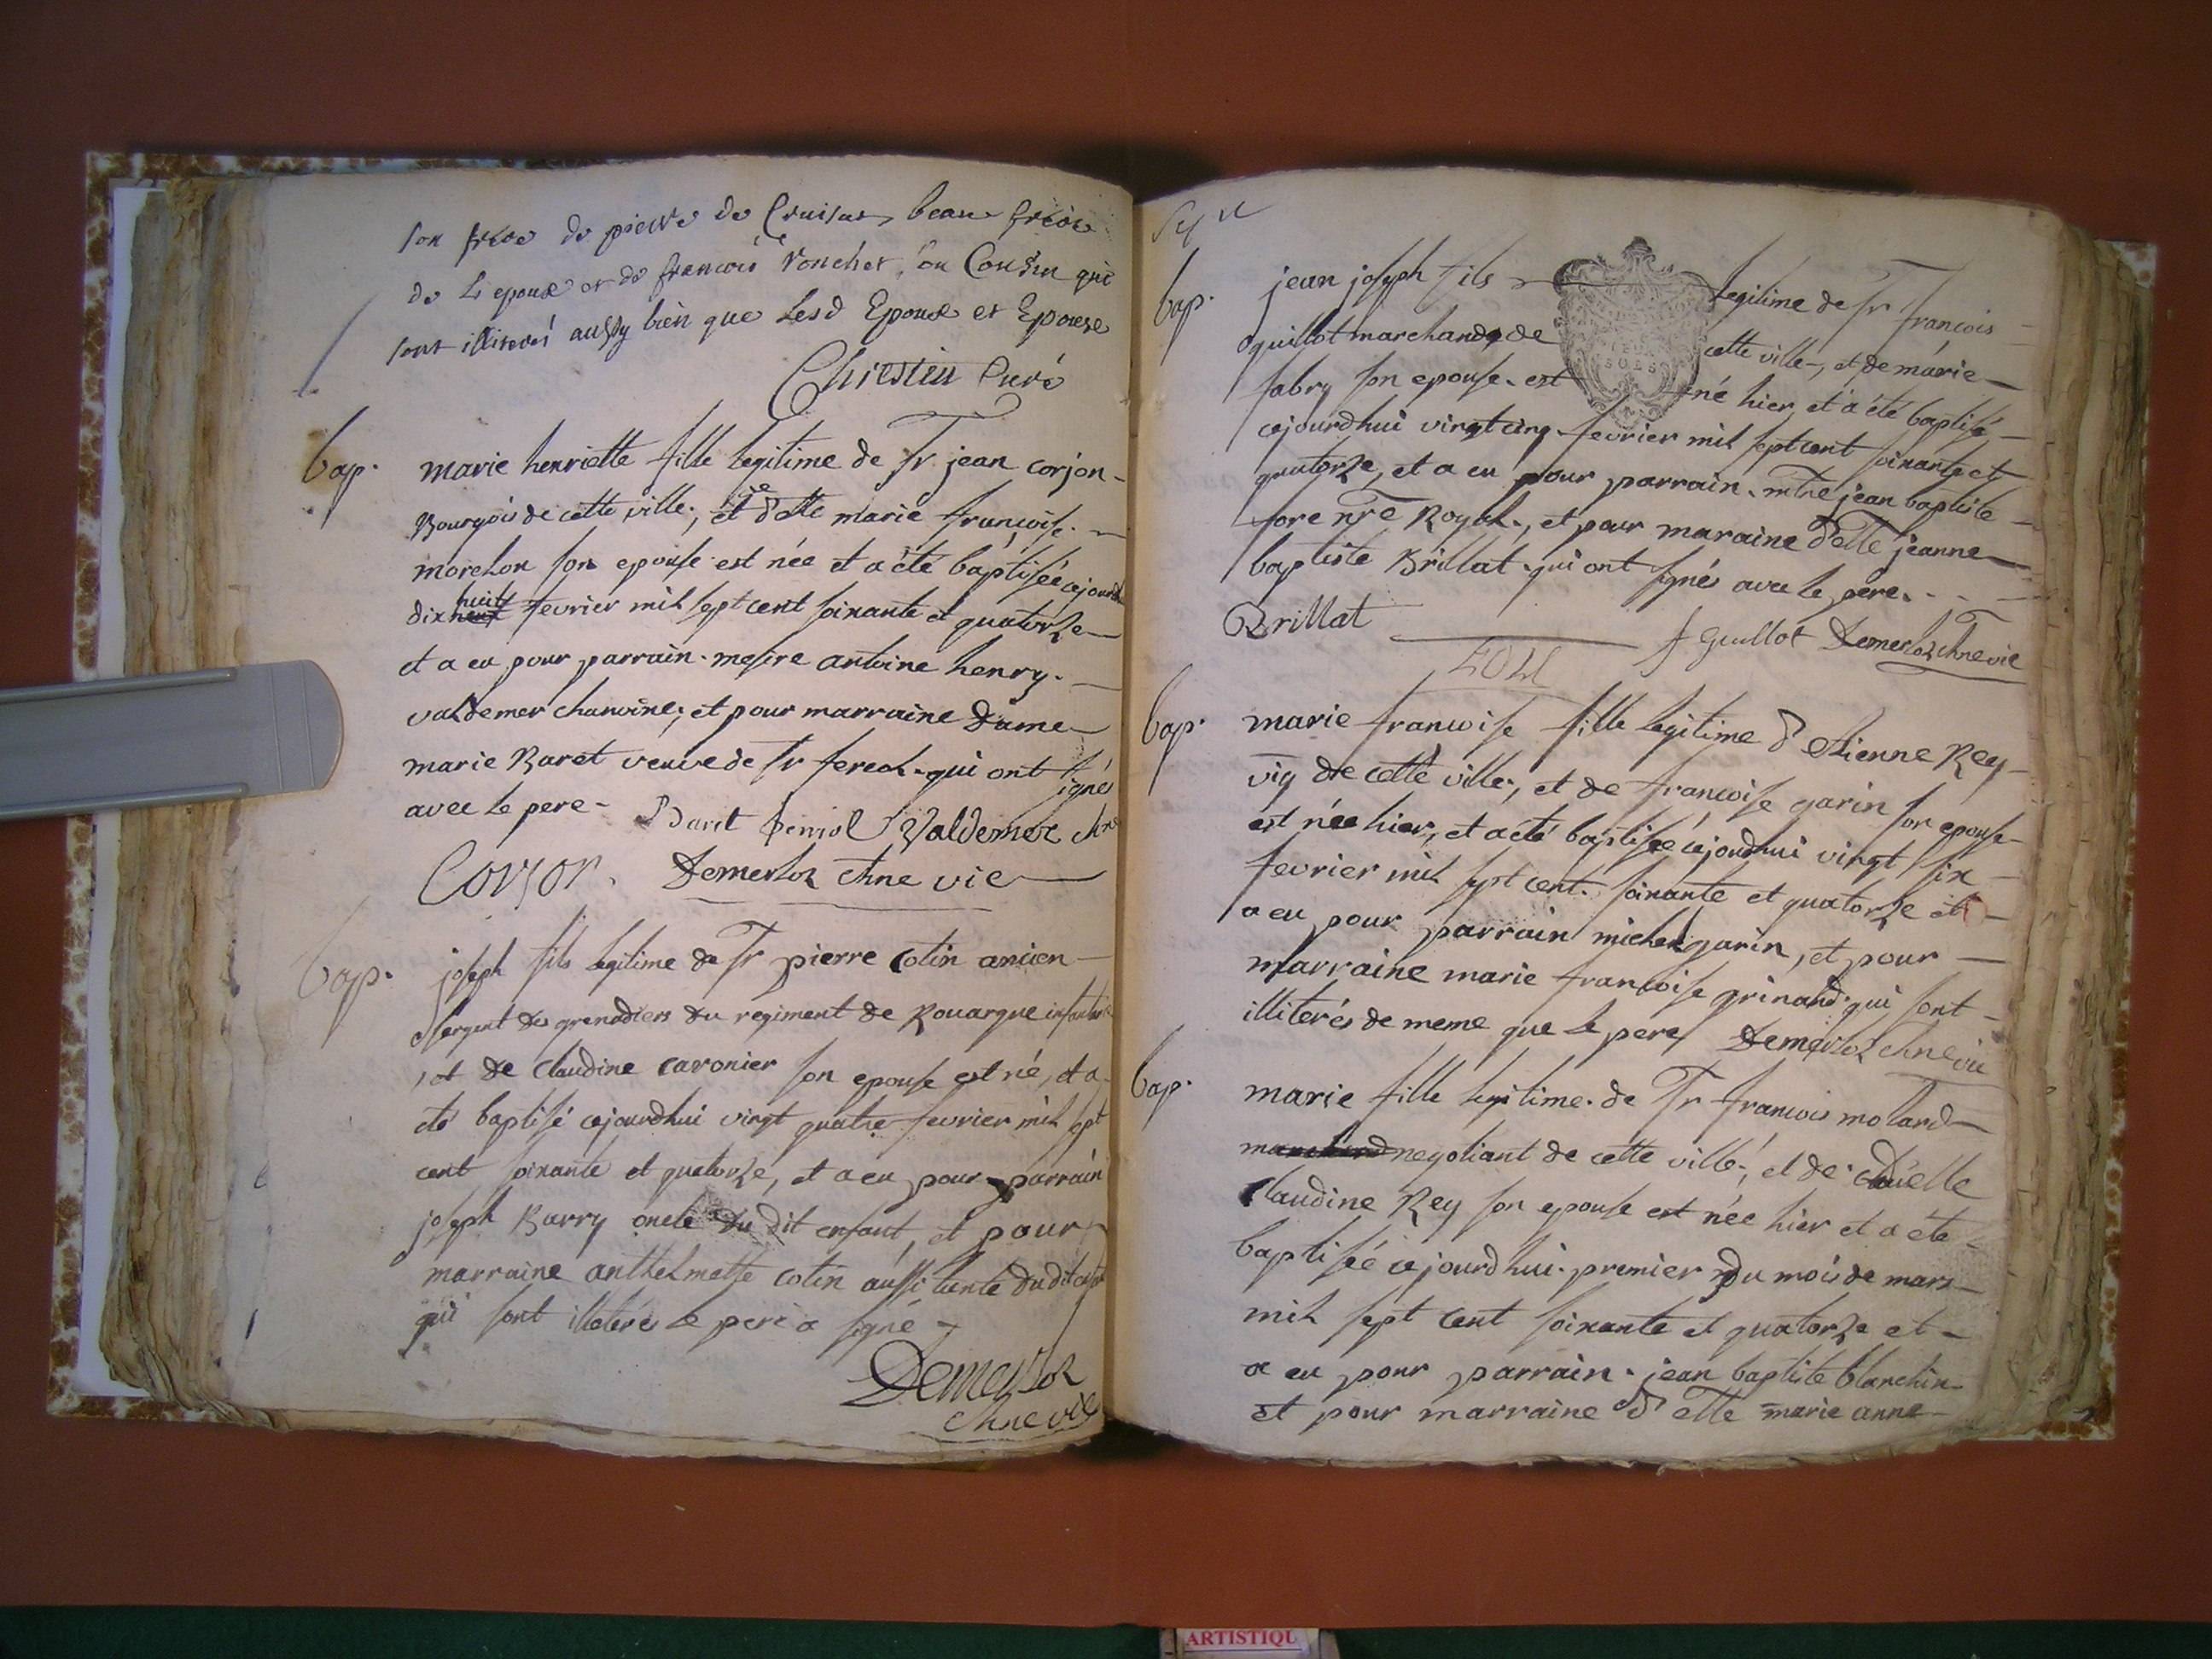 son frere de pierre de Cruisat, beau frere
de L epoux et de francois Ronchet, son Cousin qui
sont illiterés aussy bien que Lesd Epoux et Epouse
Chrestin Curé
bap. marie henriette fille legitime de Sr. jean corjon
Bourgois de cette ville, et de dlle marie françoise
morelon son epouse est née et a été baptisée cejourdh
dix huit fevrier mil sept cent soixante et quatorze
et a eu pour parrain. mesire antoine henry.
valdemer chanoine, et pour marraine Dame
marie Baret veuve de Sr fereol. qui ont signés
avec le pere - Baret fereol Valdemer chne
Corjon. Demerloz chne vic
bap. joseph fils legitime de Sr pierre Cotin ancien
sergent des grenadiers du regiment de Rouargue infanterie
, et de Claudine caronier son epouse est né, et a
eté baptisé cejourdhui vingt quatre fevrier mil sept
cent soixante et quatorze, et a eu pour parrain
joseph Barry oncle du dit enfant, et pour
marraine anthelmette cotin aussi tante du dit enfant
qui sont illeterés le pere a signé -
Demerloz
chne vic
bap. jean joseph fils legitime de Sr françois
guillot marchand de cette ville, et de marie
fabry son epouse. est né hier et a été baptisé
cejourdhui vingt cinq fevrier mil sept cent soixante et
quatorze, et a eu pour parrain. mtre jean baptiste
fore nre Royal., et pour maraine dlle jeanne
baptiste Brillat. qui ont signés avec le pere.
Brillat f Guillot Demerloz Chne vic
bap. marie francoise fille legitime d etienne Rey
vig de cette ville, et de francoise garin son epouse
est née hier, et a eté baptisée cejourdhui vingt six
fevrier mil sept cent. soixante et quatorze et
a eu pour parrain michel garin, et pour
marraine marie francoise grinand. qui sont
illiterés de meme que le pere Demerloz chne vic
bap. marie fille legitime. de Sr francois molard
marchand negotiant de cette ville, et de delle
Claudine Rey son epouse est née hier et a été
baptisée cejourdhui. premier du mois de mars
mil sept cent soixante et quatorze et
a eu pour parrain. jean baptiste blanchin
et pour marraine dlle marie anne
ARTISTIQU